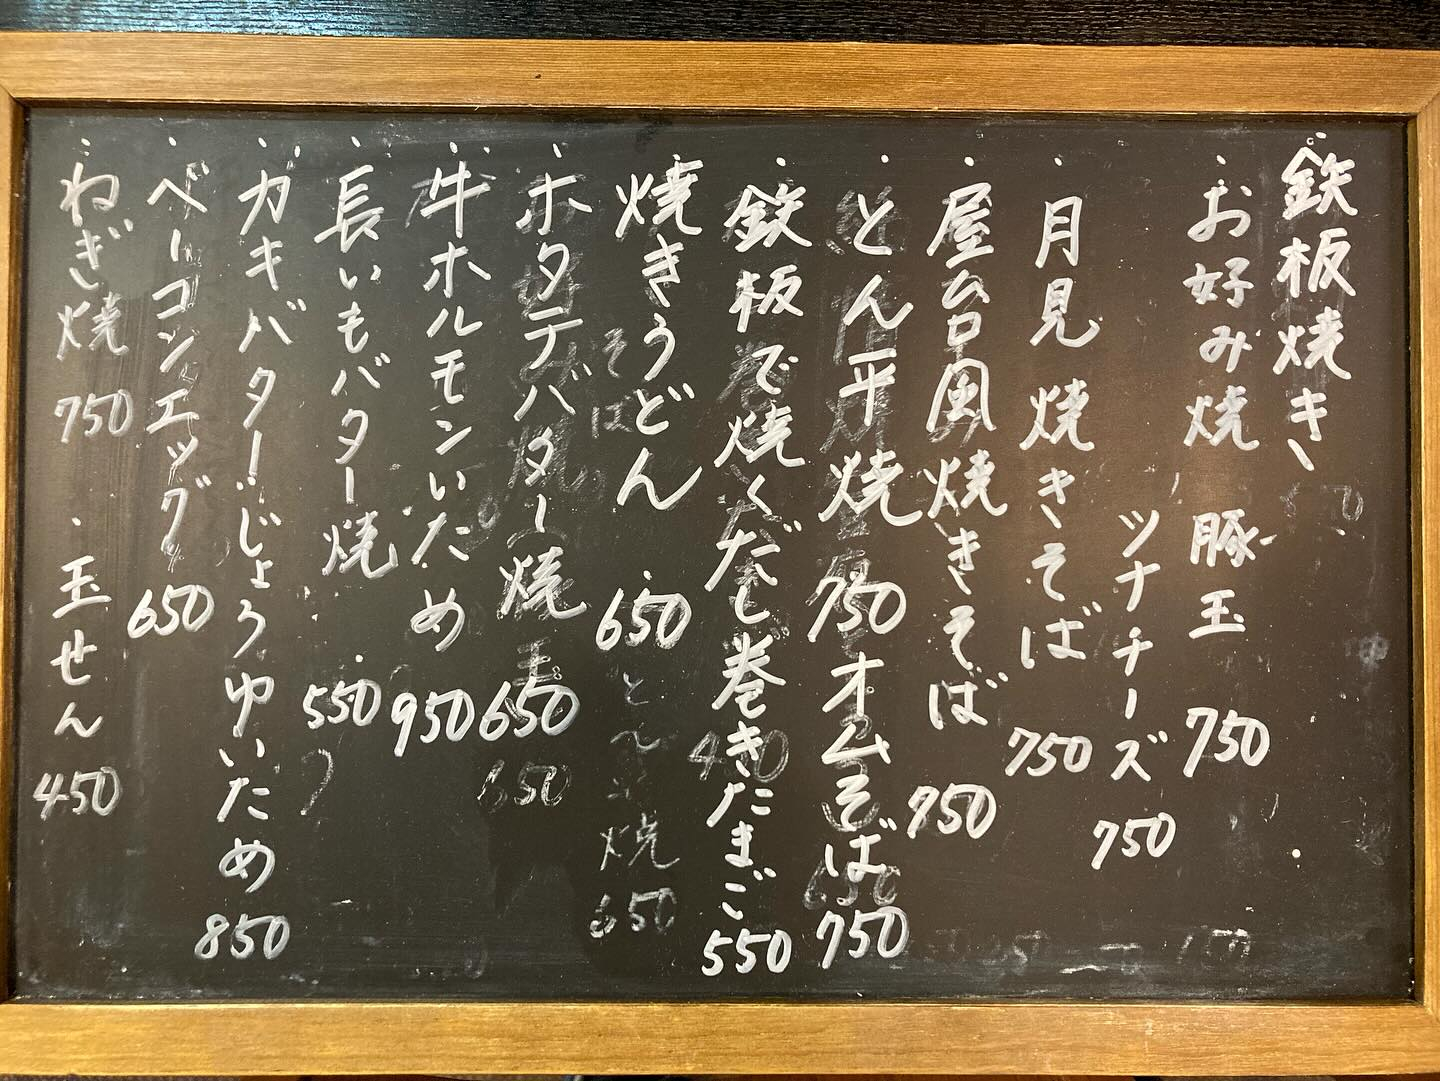 鉄板焼き
・お好み焼 豚玉 750
ツナチーズ 750
・月見焼きそば 750
・屋台風焼きそば 750
・とん平焼 750 オムそば 750
・鉄板で焼くだし巻きたまご 550
・焼きうどん 650
・ホタテバター焼 650
・牛ホルモンいため 950
・長いもバター焼 550
・カキバターじょうゆいため 850
・ベーコンエッグ 650
・ねぎ焼 750 ・玉せん 450